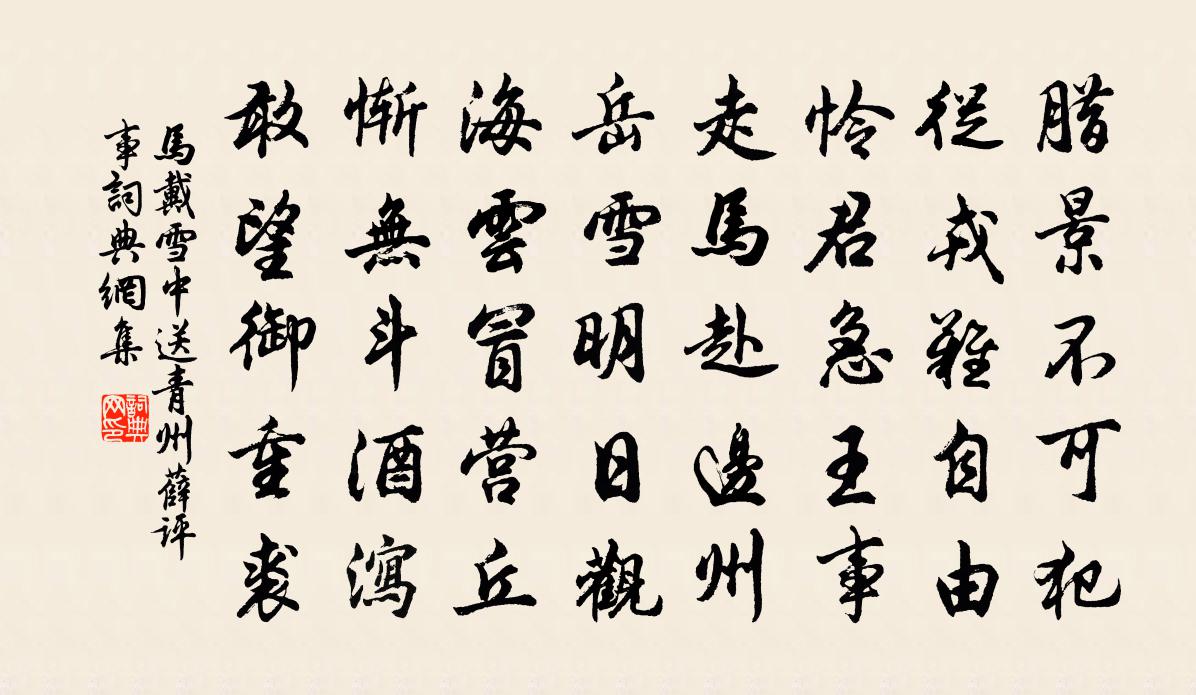 腊景不可犯
從戎難自由
怜君急王事
走馬赴邊州
岳雪明日觀
海雲冒营丘
慚無斗酒瀉
敢望御重裘
馬戴雪中送青州薛評
事詞典網集
詞典网印